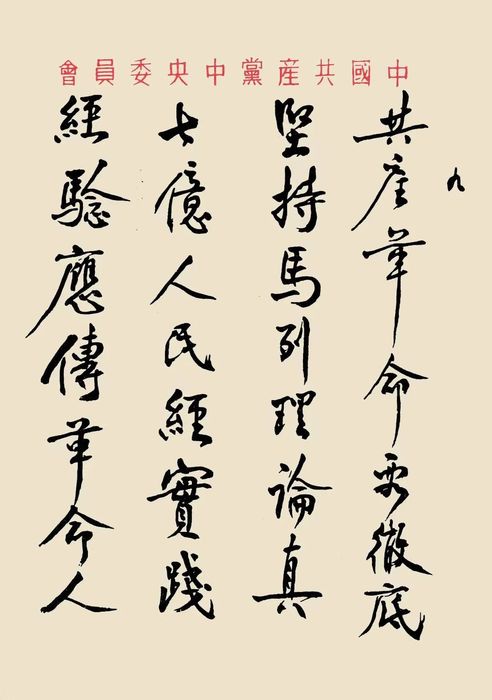 中國共産黨中央委員會
九
共産革命要徹底
堅持馬列理論真
七億人民經實踐
經驗應傳革命人